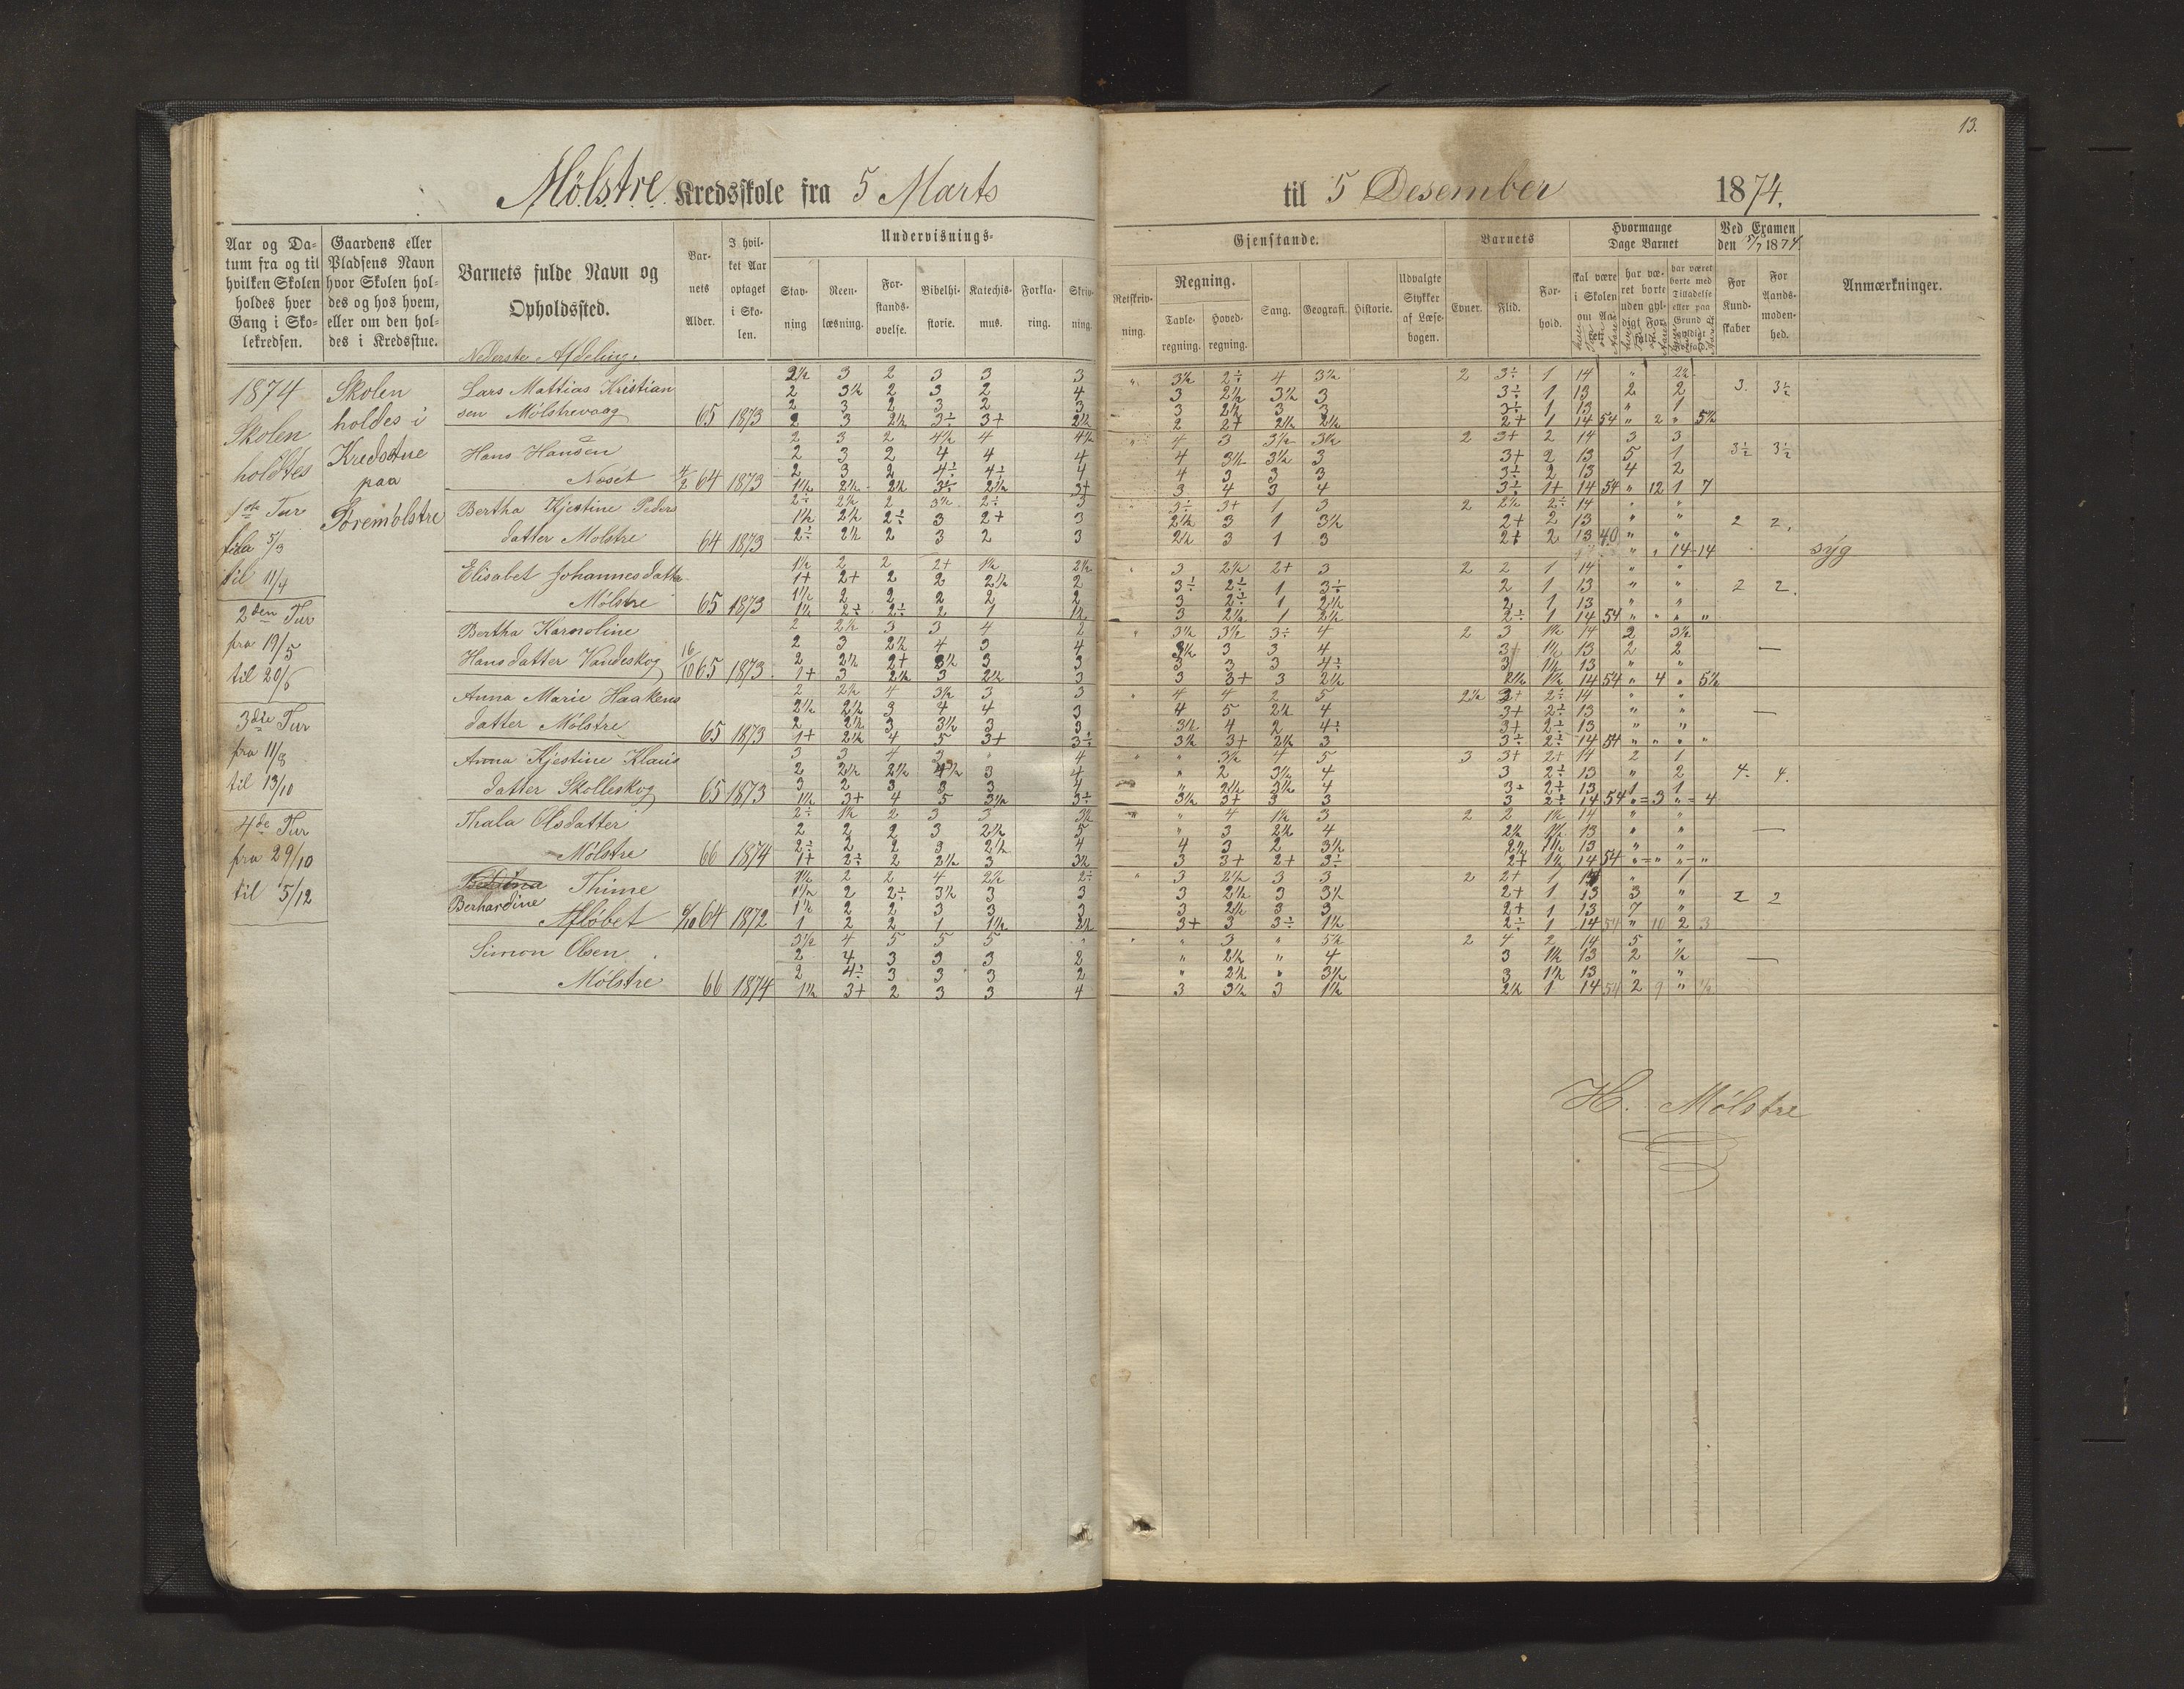 13.
Mölstre Kredsskole fra 5 Marts til 5 Desember 1874.
Aar og Da-
tum fra og til
hvilken Skolen
holdes hver
Gang i Sko-
lekredsen.
Gaardens eller
Pladsens Navn
hvor Skolen hol-
des og hos hvem,
eller om den hol-
des i Kredsstue.
Barnets fulde Navn og
Opholdssted.
Bar-
nets
Alder.
I hvil-
ket Aar
optaget
i Sko-
len.
Undervisnings-
Stav-
ning
Reen-
læsning.
For-
stands-
øvelse.
Bibelhi-
storie.
Katechis-
mus.
Forkla-
ring.
Skriv-
ning.
Gjenstande.
Retskriv-
ning.
Regning.
Tavle-
regning.
Hoved-
regning.
Sang.
Geografi.
Historie.
Udvalgte
Stykker
af Læse-
bogen.
Barnets
Evner.
Flid.
For-
hold.
Hvormange
Dage Barnet
skal være
i Skolen
om Aa-
ret.
har væ-
ret borte
uden gyl-
digt For-
fald.
har været
borte med
Tilladelse
eller paa
Grund af
gyldigt
Forfald.
Ved Examen
den 5/7 1874.
For
Kund-
skaber
For
Aands-
moden-
hed.
Anmærkninger.
Nederste Afdeling.
1874
Skolen
holdtes
1ste Tur
fra 5/3
til 11/4
2den Tur
fra 19/5
til 20/6
3die Tur
fra 11/8
til 13/10
4de Tur
fra 29/10
til 5/12
Skolen
holdes i
Kredstue
paa
Søremölstre
Lars Mattias Kristian
sen Mölstrevaag 65 1873
2½ 3 2 3 3 3 " 3½ 2÷ 4 3½ 2 3÷ 1 14 " 2½
2 3½ 2 3 2 4 3 2½ 3½ 3 3÷ 1 13 2 2 3. 3½
2 3 2 3 2 3 3 2½ 3 3 3÷ 1 13 " 1
2 3 2½ 3÷ 3+ 2½ 2 2+ 2½ 2½ 2+ 1 14 54 " 2 " 5½
Hans Hansen
Nøsét 4/2 64 1873
2 3 2 4½ 4 4½ " 4 3 3½ 3½ 2 3+ 2 14 3 3
2 3 2 4 4 4 4 3½ 3½ 3 3+ 2 13 5 1 3½ 3½
2 3 2 4÷ 4÷ 4 4 3 3 3 3÷ 2 13 4 2
1½ 2½ 2½ 3÷ 2½ 3+ 3 4 3 4 3÷ 1+ 14 54 " 12 1 7
Bertha Kjestine Peders
datter Mölstre 64 1873
2÷ 2½ 2 3½ 2÷ 3 3÷ 3+ 1 3 2 2½ 2÷ 14 " "
1½ 2½ 2÷ 3 2+ 3 2½ 3 1 3½ 2+ 2 13 " " 2 2.
2÷ 2½ 2 3 2 3 2½ 3 1 3 2+ 2 13 40 " "
" " 14 14 syg
Elisabet Johannesdatter
Mölstre 65 1873
1½ 2 2 2+ 1½ 2½ " 3 2½ 2+ 3 2 2 1 14 " "
1+ 2+ 2 2 2½ 2 3÷ 2÷ 1 3÷ 2 1 13 " " 2 2.
1½ 2 2 2 2 2 3 2÷ 1 2½ 2 1 13 " "
1½ 2÷ 2÷ 2 1 1½ 3 2½ 1 2½ 2÷ 1 14 54 " " " "
Bertha Karnoline
Hansdatter Vandeskog 16/10 65 1873
2 2½ 3 3 4 2 " 3½ 3½ 3÷ 4 2 3 1½ 14 2 3½
2 3 2½ 4 3 4 3½ 3 3 4 3+ 1½ 13 2 2 —
2 2½ 2+ 3½ 3 3 3 3 3 4÷ 3 1½ 13 " "
1+ 3 2½ 3 2½ 3 3 3+ 3 2½ 2½ 1½ 14 54 " 4 " 5½
Anna Marie Haakens
datter Mölstre 65 1873
2 2½ 4 3½ 3 3 " 4 4 2 5 2½ 3+ 2÷ 14 " "
2½ 2½ 3 4 4 3 4 5 2½ 4 3+ 2÷ 13 " " —
2 2½ 3 3½ 3 3 3½ 4 2 4÷ 3+ 2÷ 13 " "
1+ 2½ 4 5 3+ 3÷ 3½ 3+ 2½ 3 3÷ 2÷ 14 54 " " " "
Anna Kjestine Klaus
datter Skolleskog 65 1873
3 3 4 3 " 4 " " 3½ 4 5 3 3+ 2+ 14 2 1
2 2½ 2½ 4½ 3 4 " 2 3½ 4 3 2÷ 13 " 2 4. 4.
3 2 3 3 3 4 " 2½ 3½ 4 3+ 2÷ 13 1 1
1½ 3+ 4 5 3½ 3÷ 3½ 3+ 3 3 3 2÷ 14 54 " 3 " 4
Thala Olsdatter
Mölstre 66 1874
2÷ 1½ 2 3 3 3½ " " 4 1½ 3 2 2 1½ 14 " "
2 2 2 3 2½ 5 " 3 2½ 4 2½ 1½ 13 " " —
2÷ 2 2 3 2½ 4 4 3 2 3½ 2½ 1½ 13 " "
1+ 2÷ 2 2½ 3 3½ 3 3+ 2+ 3÷ 2+ 1½ 14 54 " " " "
Thime
Berhardine
Aflöbet 6/10 64 1872
1½ 2 2 4 2½ 2÷ " 3 2½ 3 3 2 2+ 1 14 " 1
1½ 2 2÷ 3½ 3 3 3 2½ 3 3½ 2+ 1 13 3 " 2 2
1½ 2 2 3 3 3 3 2½ 3 3 2+ 1 13 7 "
1 2 2 1 1½ 2½ 3+ 3 3÷ 1½ 2÷ 1 14 54 " 10 2 3
Simon Olsen
Mölstre 66 1874
3½ 4 5 5 5 " " " 3 " 5½ 2 4 2 14 5 "
2 4 3 3 3 2 " 2½ " 4 3 1½ 13 2 ½ —
2 4÷ 3 3 3 2 " 2½ " 3½ 3 1½ 13 " "
1½ 3+ 2 3 3 4 3 3½ 3 1½ 2½ 1 14 54 2 9 " ½
H. Mölstre